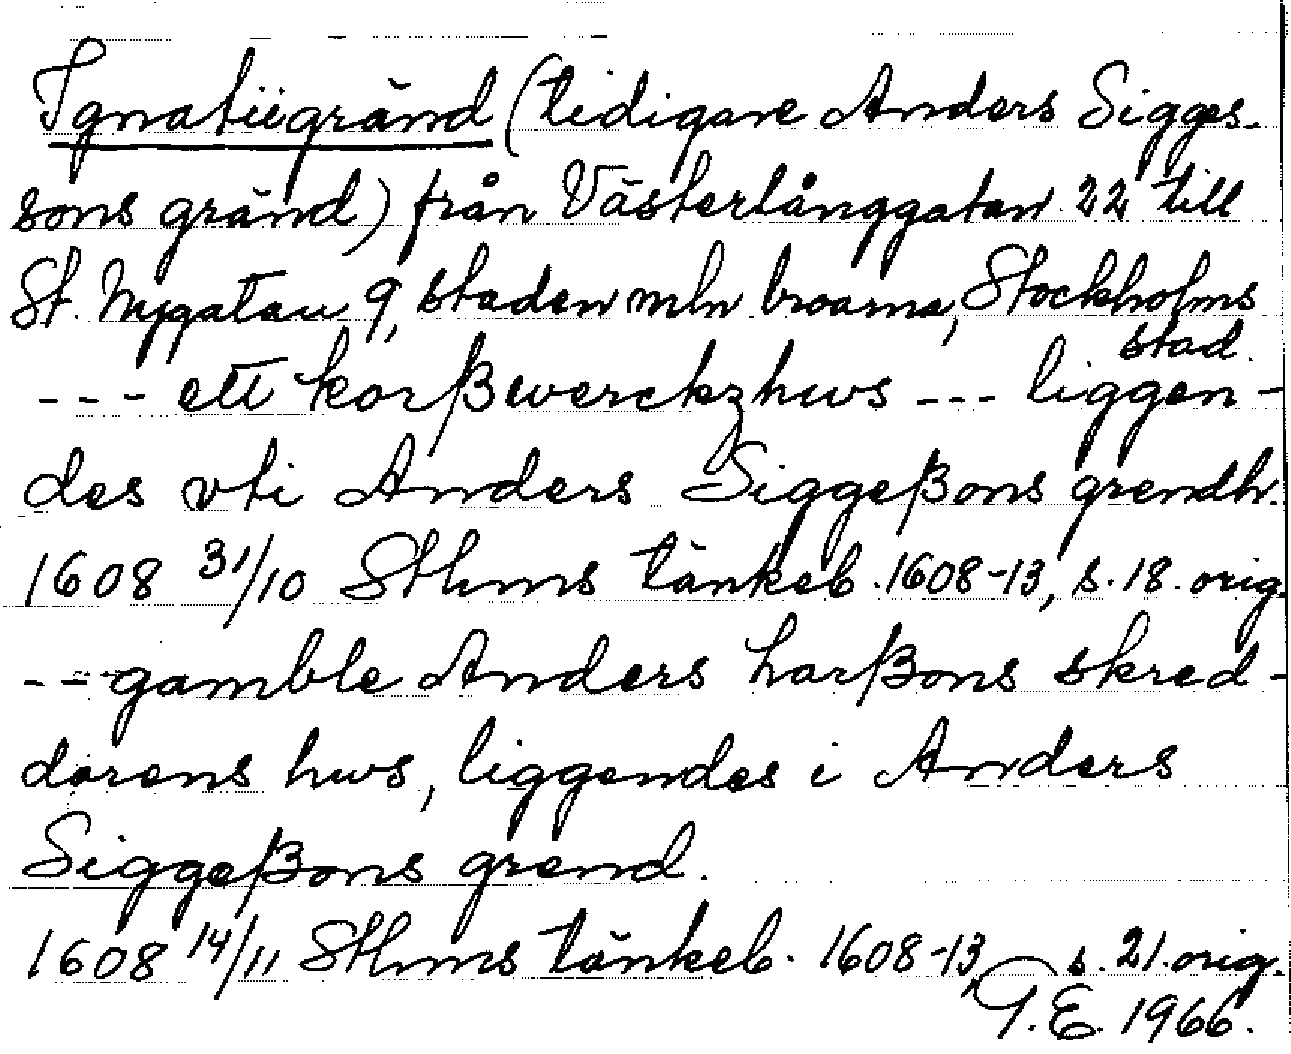 Ignatiigränd (tidigare Anders Sigges-
sons gränd) från Västerlånggatan 22 till
St. Nygatan 9, staden mln broarna, Stockholms
stad.
--- ett korßwerckzhws --- liggen-
des vti Anders Siggeßons grendh.
1608 31/10 Sthms tänkeb. 1608-13, s. 18. orig.
--- gamble Anders harßons skred-
darens hws, liggendes i Anders
Siggeßons grend.
1608 14/11 Sthms tänkeb. 1608-13, s. 21. orig.
G.E. 1966.